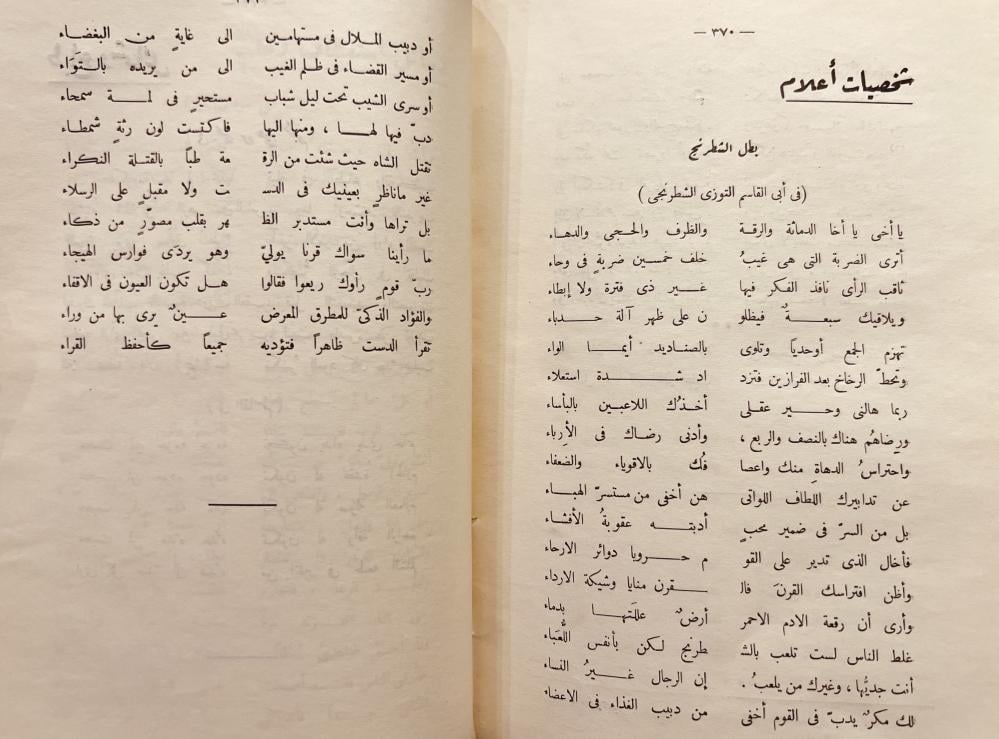 — ٣٧٠ —
شخصيات أعلام
بطل الشطرنج
(فى أبى القاسم التوزى الشطرنجى)
يا أخى يا أخا الدماثة والرقـة والظرف والحجى والدهاء
أترى الضربة التى هى غيبُ خلف خمسين ضربةٍ فى وحاء
ثاقب الرأى نافذ الفكر فيها غـير ذى فترة ولا إبطاء
ويلاقيك سبعـةٌ فيظلو ن على ظهر آلة حـدباء
تهزم الجمع أوحديا وتلوى بالصناديد أيمـا الواء
وتحطّ الرخاخ بعد الفرازين فتزد اد شـدة استعلاء
ربما هالنى وحـير عقلى أخـذُك اللاعبـين بالبأساء
ورضاهُم هناك بالنصف والربع ، وأدنى رضاك فى الأرباء
واحتراسُ الدهاةِ منك واعصا فُك بالاقوياء والضعفاء
عن تدابيرك اللطاف اللواتى هن أخفى من مستسرّ الهبـاء
بل من السرّ فى ضمير محبٍ أدبتـه عقوبةُ الأفشاء
فأخال الذى تدير على القو م حـروبا دوائر الارحاء
وأظن افتراسك القرنَ فالـ ـقرن منايا وشيكة الارداء
وأرى أن رقعة الادم الاحمر أرضٌ عللتَهـا بدماء
غلط الناس لست تلعب بالشـ طرنج لـكن بأنفس اللُّعَباء
أنت جديُّها ، وغيرك من يلعبُ . إن الرجال غـيرُ النساء
لك مكرٌ يدبّ فى القوم أخفى من دبيب الغذاء فى الاعضاء
أو دبيب المـلال فى مستهامين الى غايةٍ من البغضاء
أو مسير القضاء فى ظلم الغيب الى من يريده بالتـوَاء
أو سرى الشيب تحت ليل شباب مستحيرٍ فى لمـة سمحاء
دبّ فيها لهـا ، ومنها اليها فاكتست لون رثةٍ شمطاء
تقتل الشاه حيث شئت من الرقـ عة طبًّا بالقتـلة النكراء
غير ماناظرٍ بعينيك فى الدسـ ت ولا مقبلٍ على الرسلاء
بل تراها وأنت مستدبر الظـ هر بقلب مصوّرٍ من ذكاء
ما رأينا سواك قرنا يولىّ وهو يردَى فوارس الهيجاء
ربّ قومٍ رأوك ريعوا فقالوا هـل تكون العيون فى الاقفاء
والفؤاد الذكىّ للمطرق المعرض عـينٌ يرى بها من وراء
تقرأ الدست ظاهراً فتؤديه جميعاً كأحفظ القراء